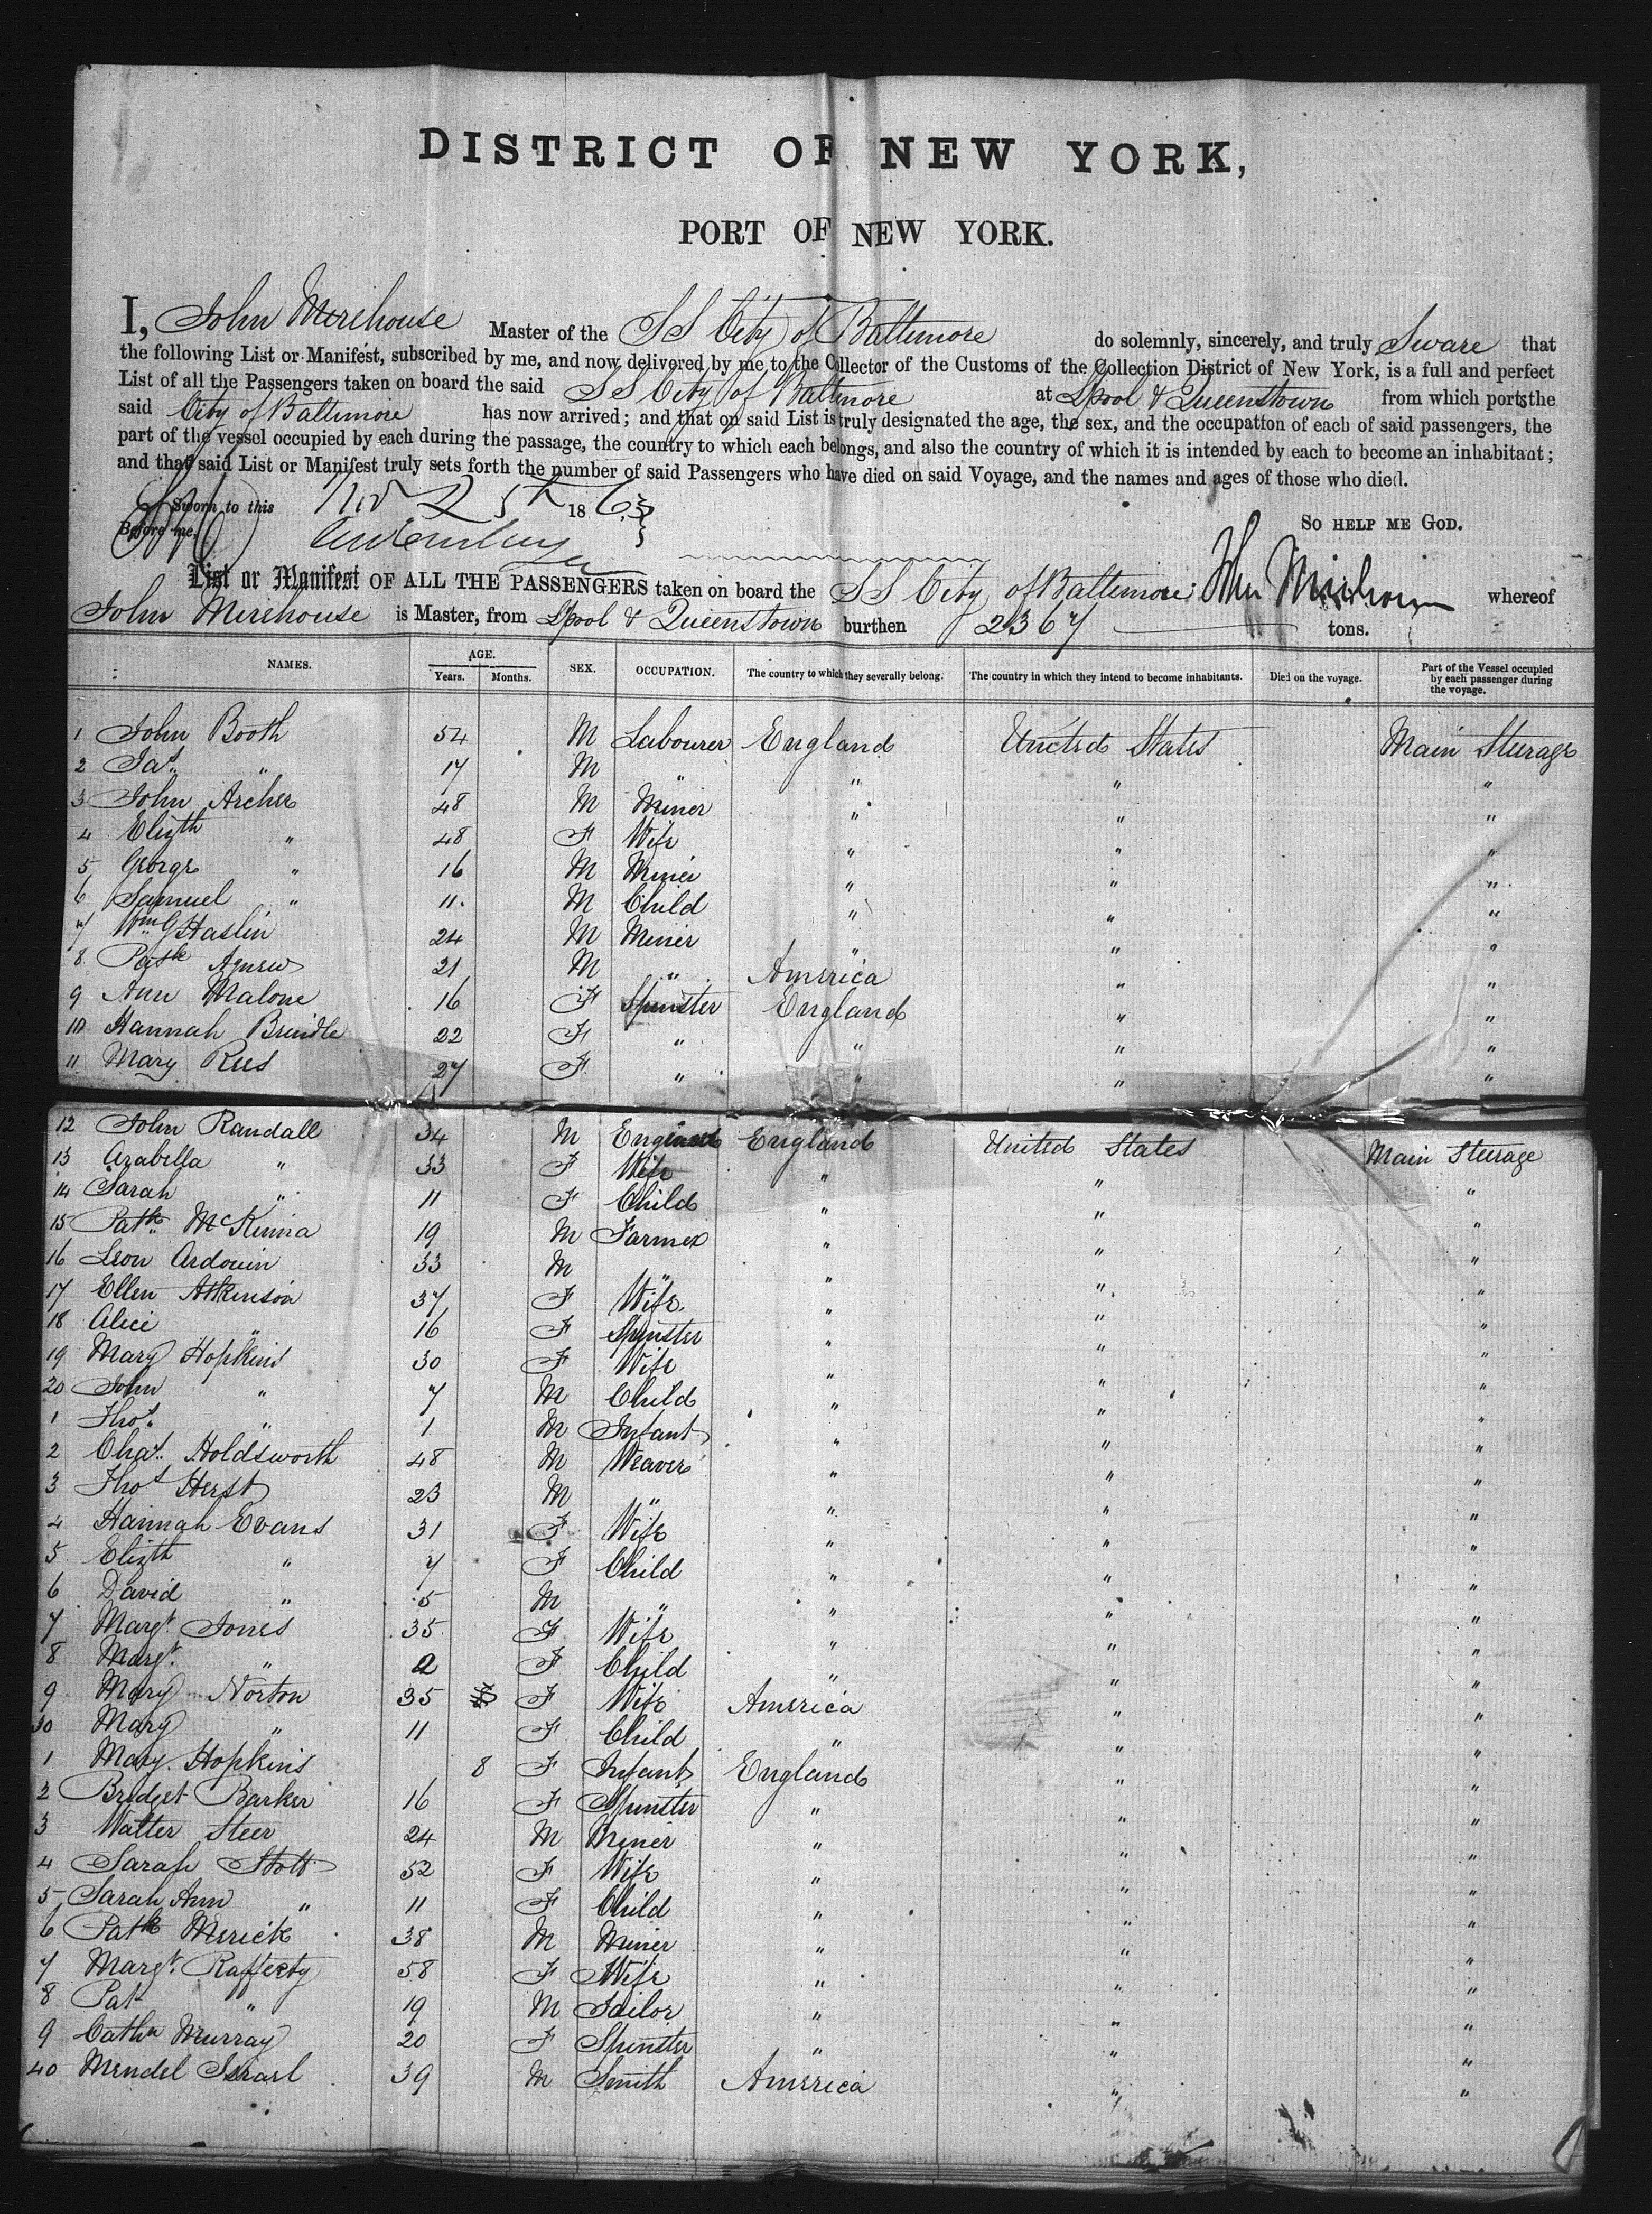 DISTRICT OF NEW YORK,
PORT OF NEW YORK.
I, John Mirehouse Master of the SS City of Baltimore do solemnly, sincerely, and truly Sware that
the following List or Manifest, subscribed by me, and now delivered by me to the Collector of the Customs of the Collection District of New York, is a full and perfect
List of all the Passengers taken on board the said SS City of Baltimore at Lpool & Queenstown from which ports the
said City of Baltimore has now arrived; and that on said List is truly designated the age, the sex, and the occupation of each of said passengers, the
part of the vessel occupied by each during the passage, the country to which each belongs, and also the country of which it is intended by each to become an inhabitant;
and that said List or Manifest truly sets forth the number of said Passengers who have died on said Voyage, and the names and ages of those who died.
Sworn to this Nov 25th 1863
Before me,
SO HELP ME GOD.
List or Manifest OF ALL THE PASSENGERS taken on board the SS City of Baltimore John Mirehouse whereof
John Mirehouse is Master, from Lpool & Queenstown burthen 2367 tons.
NAMES. AGE. Years. Months. SEX. OCCUPATION. The country to which they severally belong. The country in which they intend to become inhabitants. Died on the voyage. Part of the Vessel occupied by each passenger during the voyage.
1 John Booth 54 M Labourer England United States Main Steerage
2 Jas. " 17 M " " " "
3 John Archer 48 M Miner " " "
4 Elizth " 48 F Wife " " "
5 George " 16 M Miner " " "
6 Samuel " 11 M Child " " "
7 Wm G Haslin 24 M Miner " " "
8 Patk Agnew 21 M " America " "
9 Ann Malone 16 F Spinster England " "
10 Hannah Brindle 22 F " " " "
11 Mary Rees 27 F " " " "
12 John Randall 34 M Engineer England United States Main Steerage
13 Arabella " 33 F Wife " " "
14 Sarah " 11 F Child " " "
15 Patk. McKinna 19 M Farmer " " "
16 Leon Ardouin 33 M " " " "
17 Ellen Atkinson 37 F Wife " " "
18 Alice " 16 F Spinster " " "
19 Mary Hopkins 30 F Wife " " "
20 John " 7 M Child " " "
1 Thos. " 1 M Infant " " "
2 Chas. Holdsworth 48 M Weaver " " "
3 Thos Herst 23 M " " " "
4 Hannah Evans 31 F Wife " " "
5 Elizth " 7 F Child " " "
6 David " 5 M " " " "
7 Margt. Jones 35 F Wife " " "
8 Margt. " 2 F Child " " "
9 Mary Norton 35 F Wife America " "
30 Mary " 11 F Child " " "
1 Mary Hopkins 8 F Infant England " "
2 Bridget Barker 16 F Spinster " " "
3 Walter Steer 24 M Miner " " "
4 Sarah Stott 52 F Wife " " "
5 Sarah Ann " 11 F Child " " "
6 Patk Merick 38 M Miner " " "
7 Margt. Rafferty 58 F Wife " " "
8 Pat " 19 M Tailor " " "
9 Cathn Murray 20 F Spinster " " "
40 Mendel Israel 39 M Smith America " "